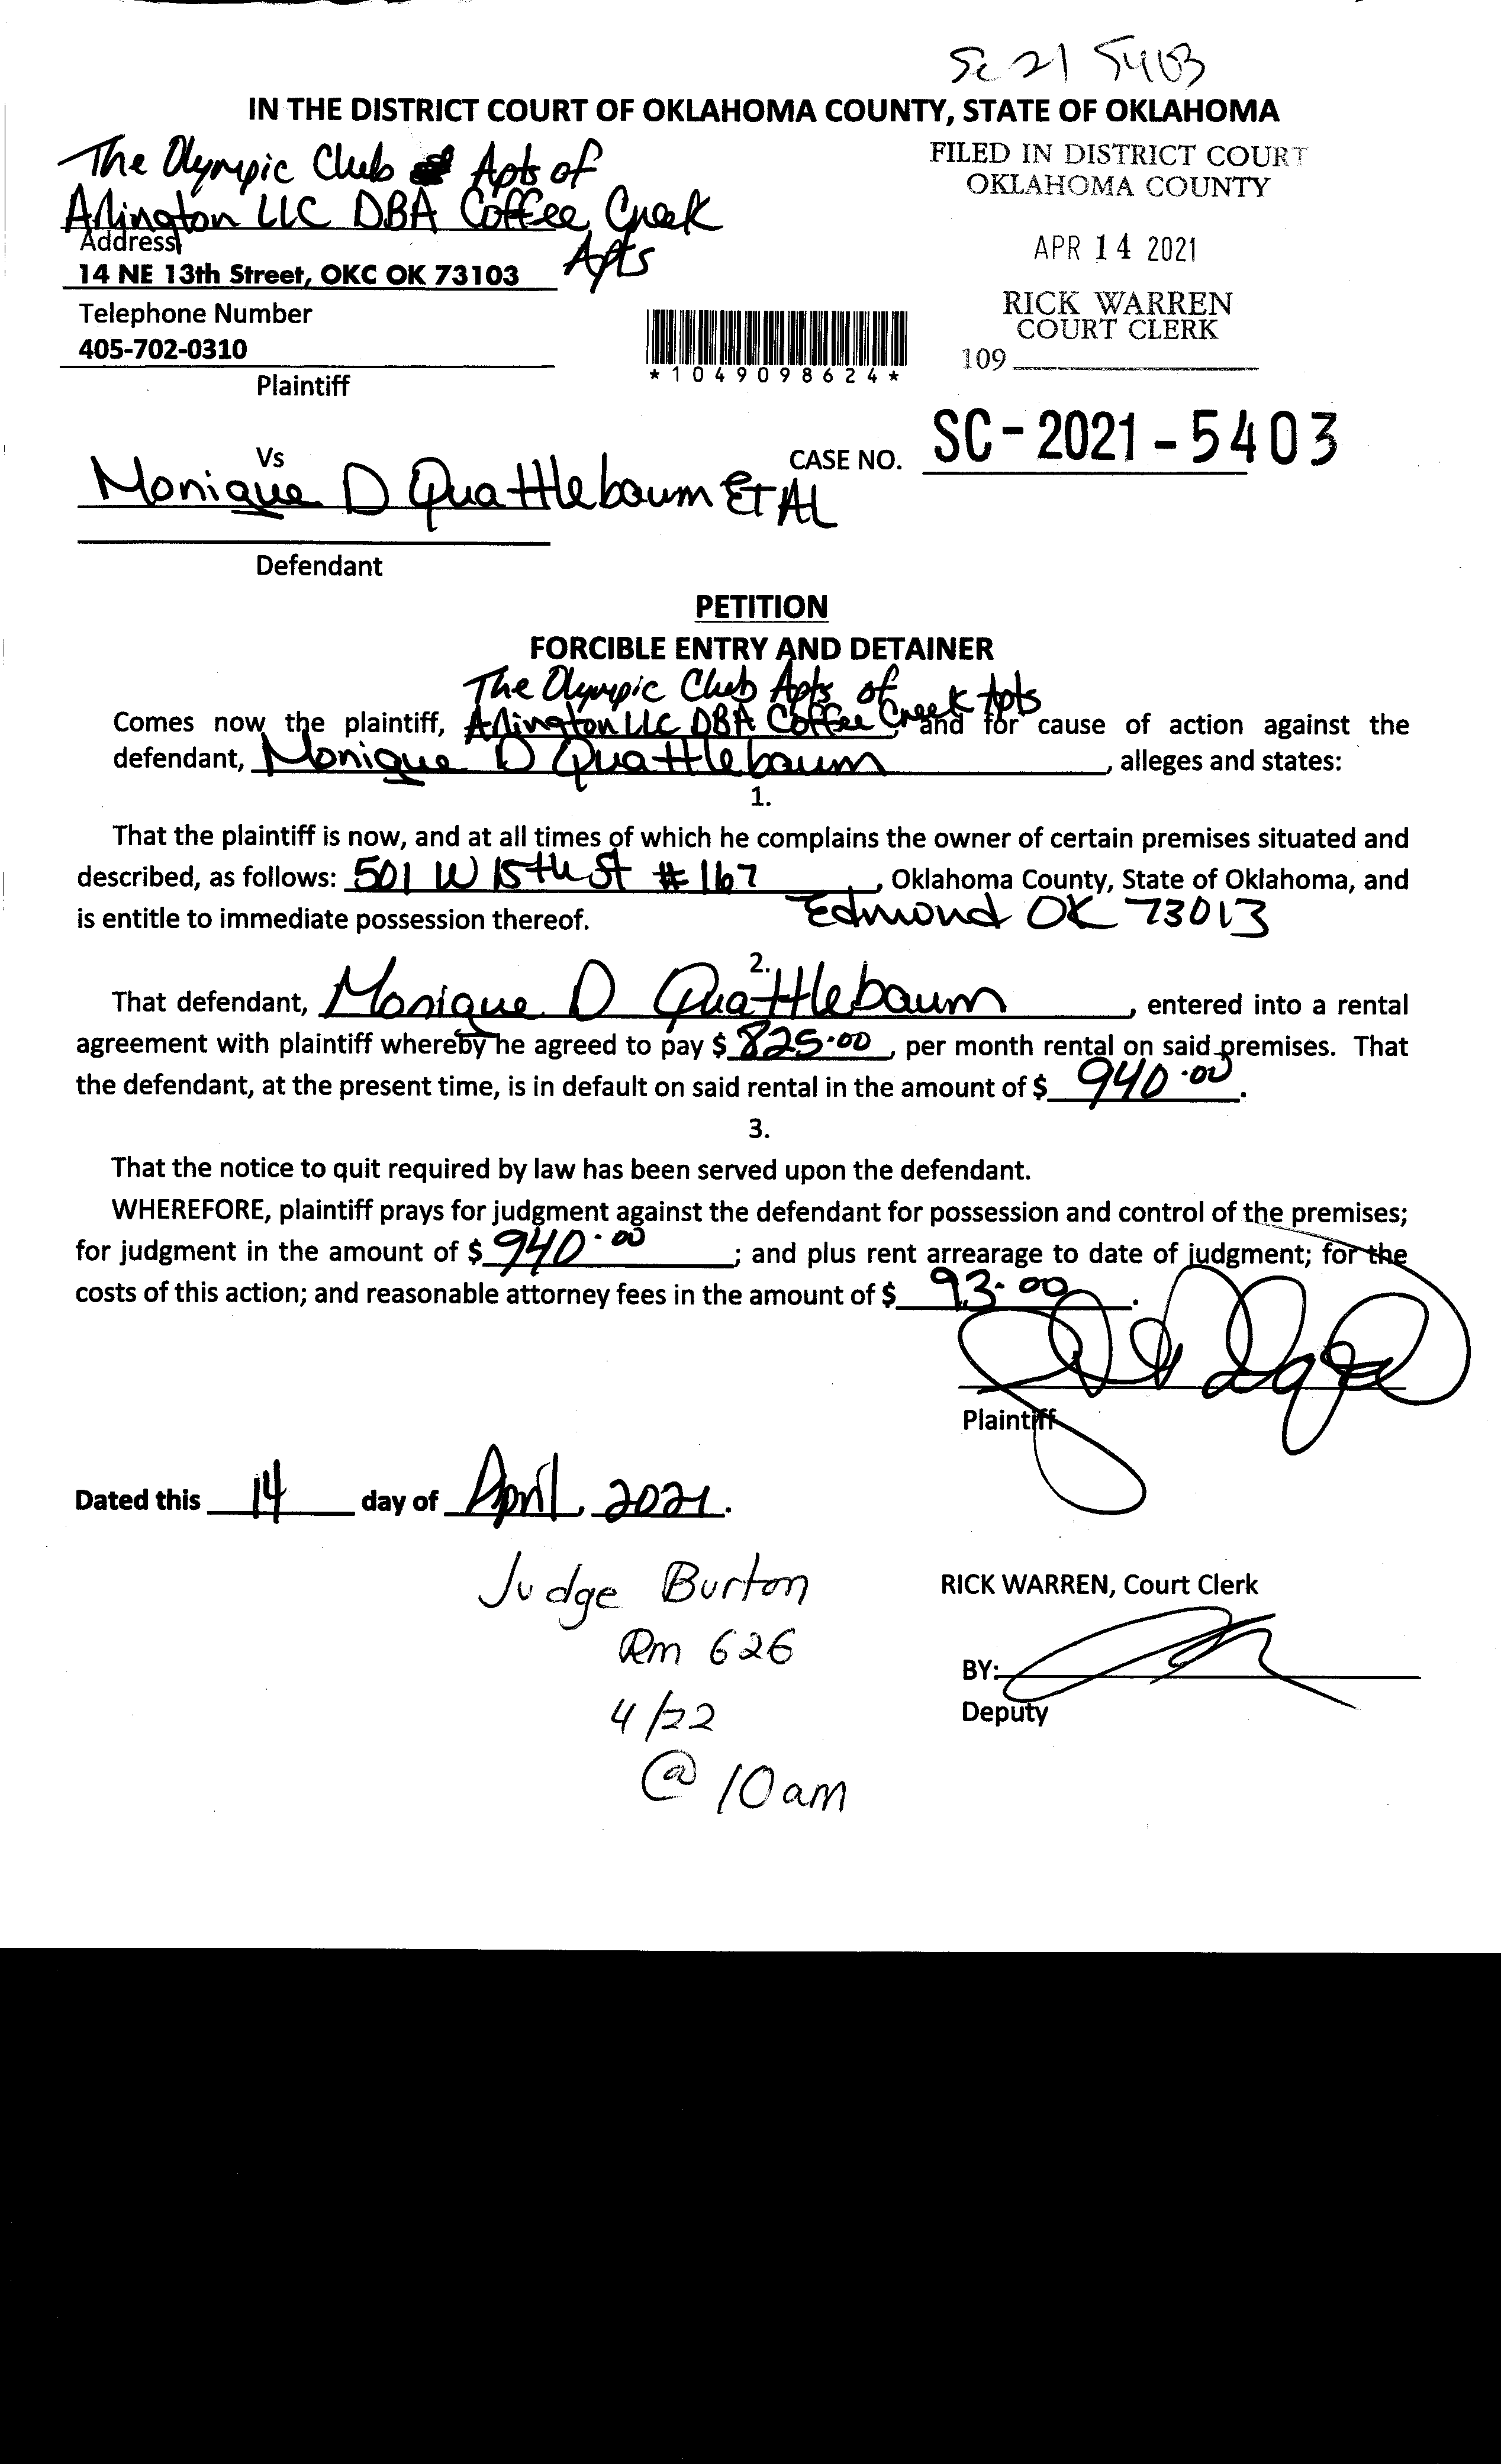 Sc 21 5403
IN THE DISTRICT COURT OF OKLAHOMA COUNTY, STATE OF OKLAHOMA
The Olympic Club Apts of
Arlington LLC DBA Coffee Creek
Apts
FILED IN DISTRICT COURT
OKLAHOMA COUNTY
APR 14 2021
RICK WARREN
COURT CLERK
109
Address
14 NE 13th Street, OKC OK 73103
Telephone Number
405-702-0310
Plaintiff
*1049098624*
Vs
CASE NO. SC-2021-5403
Monique D Quattlebaum ET AL
Defendant
PETITION
FORCIBLE ENTRY AND DETAINER
The Olympic Club Apts of
Comes now the plaintiff, Arlington LLC DBA Coffee Creek Apts, and for cause of action against the
defendant, Monique D Quattlebaum, alleges and states:
1.
That the plaintiff is now, and at all times of which he complains the owner of certain premises situated and
described, as follows: 501 W 15th St #167, Oklahoma County, State of Oklahoma, and
is entitle to immediate possession thereof. Edmond OK 73013
2.
That defendant, Monique D Quattlebaum, entered into a rental
agreement with plaintiff whereby he agreed to pay $ 825.00, per month rental on said premises. That
the defendant, at the present time, is in default on said rental in the amount of $ 940.00.
3.
That the notice to quit required by law has been served upon the defendant.
WHEREFORE, plaintiff prays for judgment against the defendant for possession and control of the premises;
for judgment in the amount of $ 940.00; and plus rent arrearage to date of judgment; for the
costs of this action; and reasonable attorney fees in the amount of $ 93.00.
Plaintiff
Dated this 14 day of April, 2021.
Judge Burton
Rm 626
4/22
@ 10am
RICK WARREN, Court Clerk
BY:
Deputy